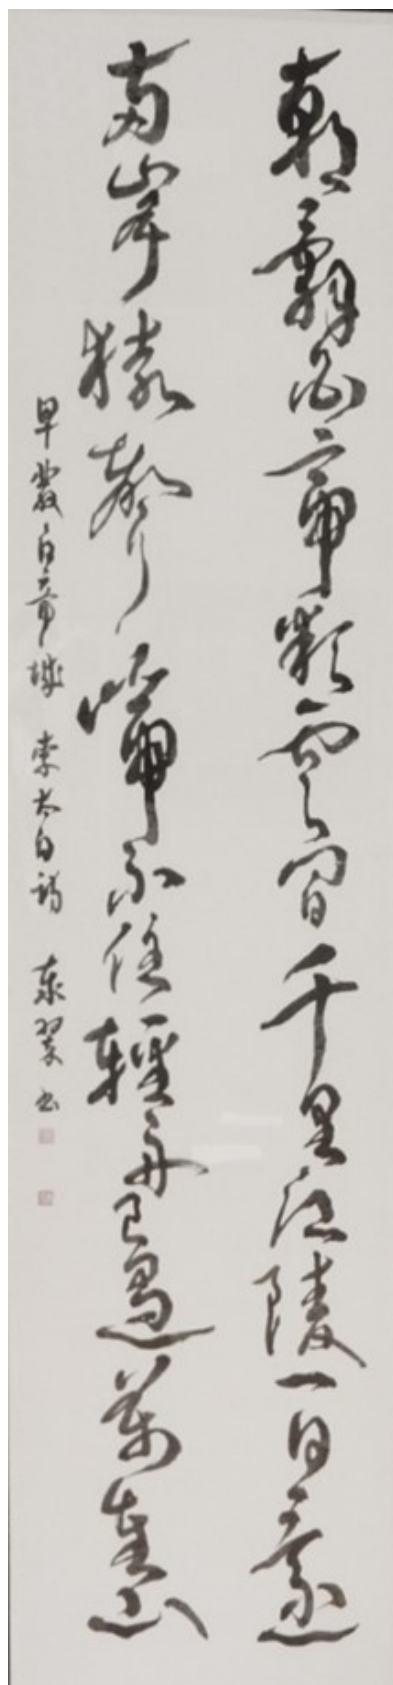 朝辭白帝彩雲間千里江陵一日還
兩岸猿聲啼不住輕舟已過萬重山
早發白帝城 李太白詩 翠書